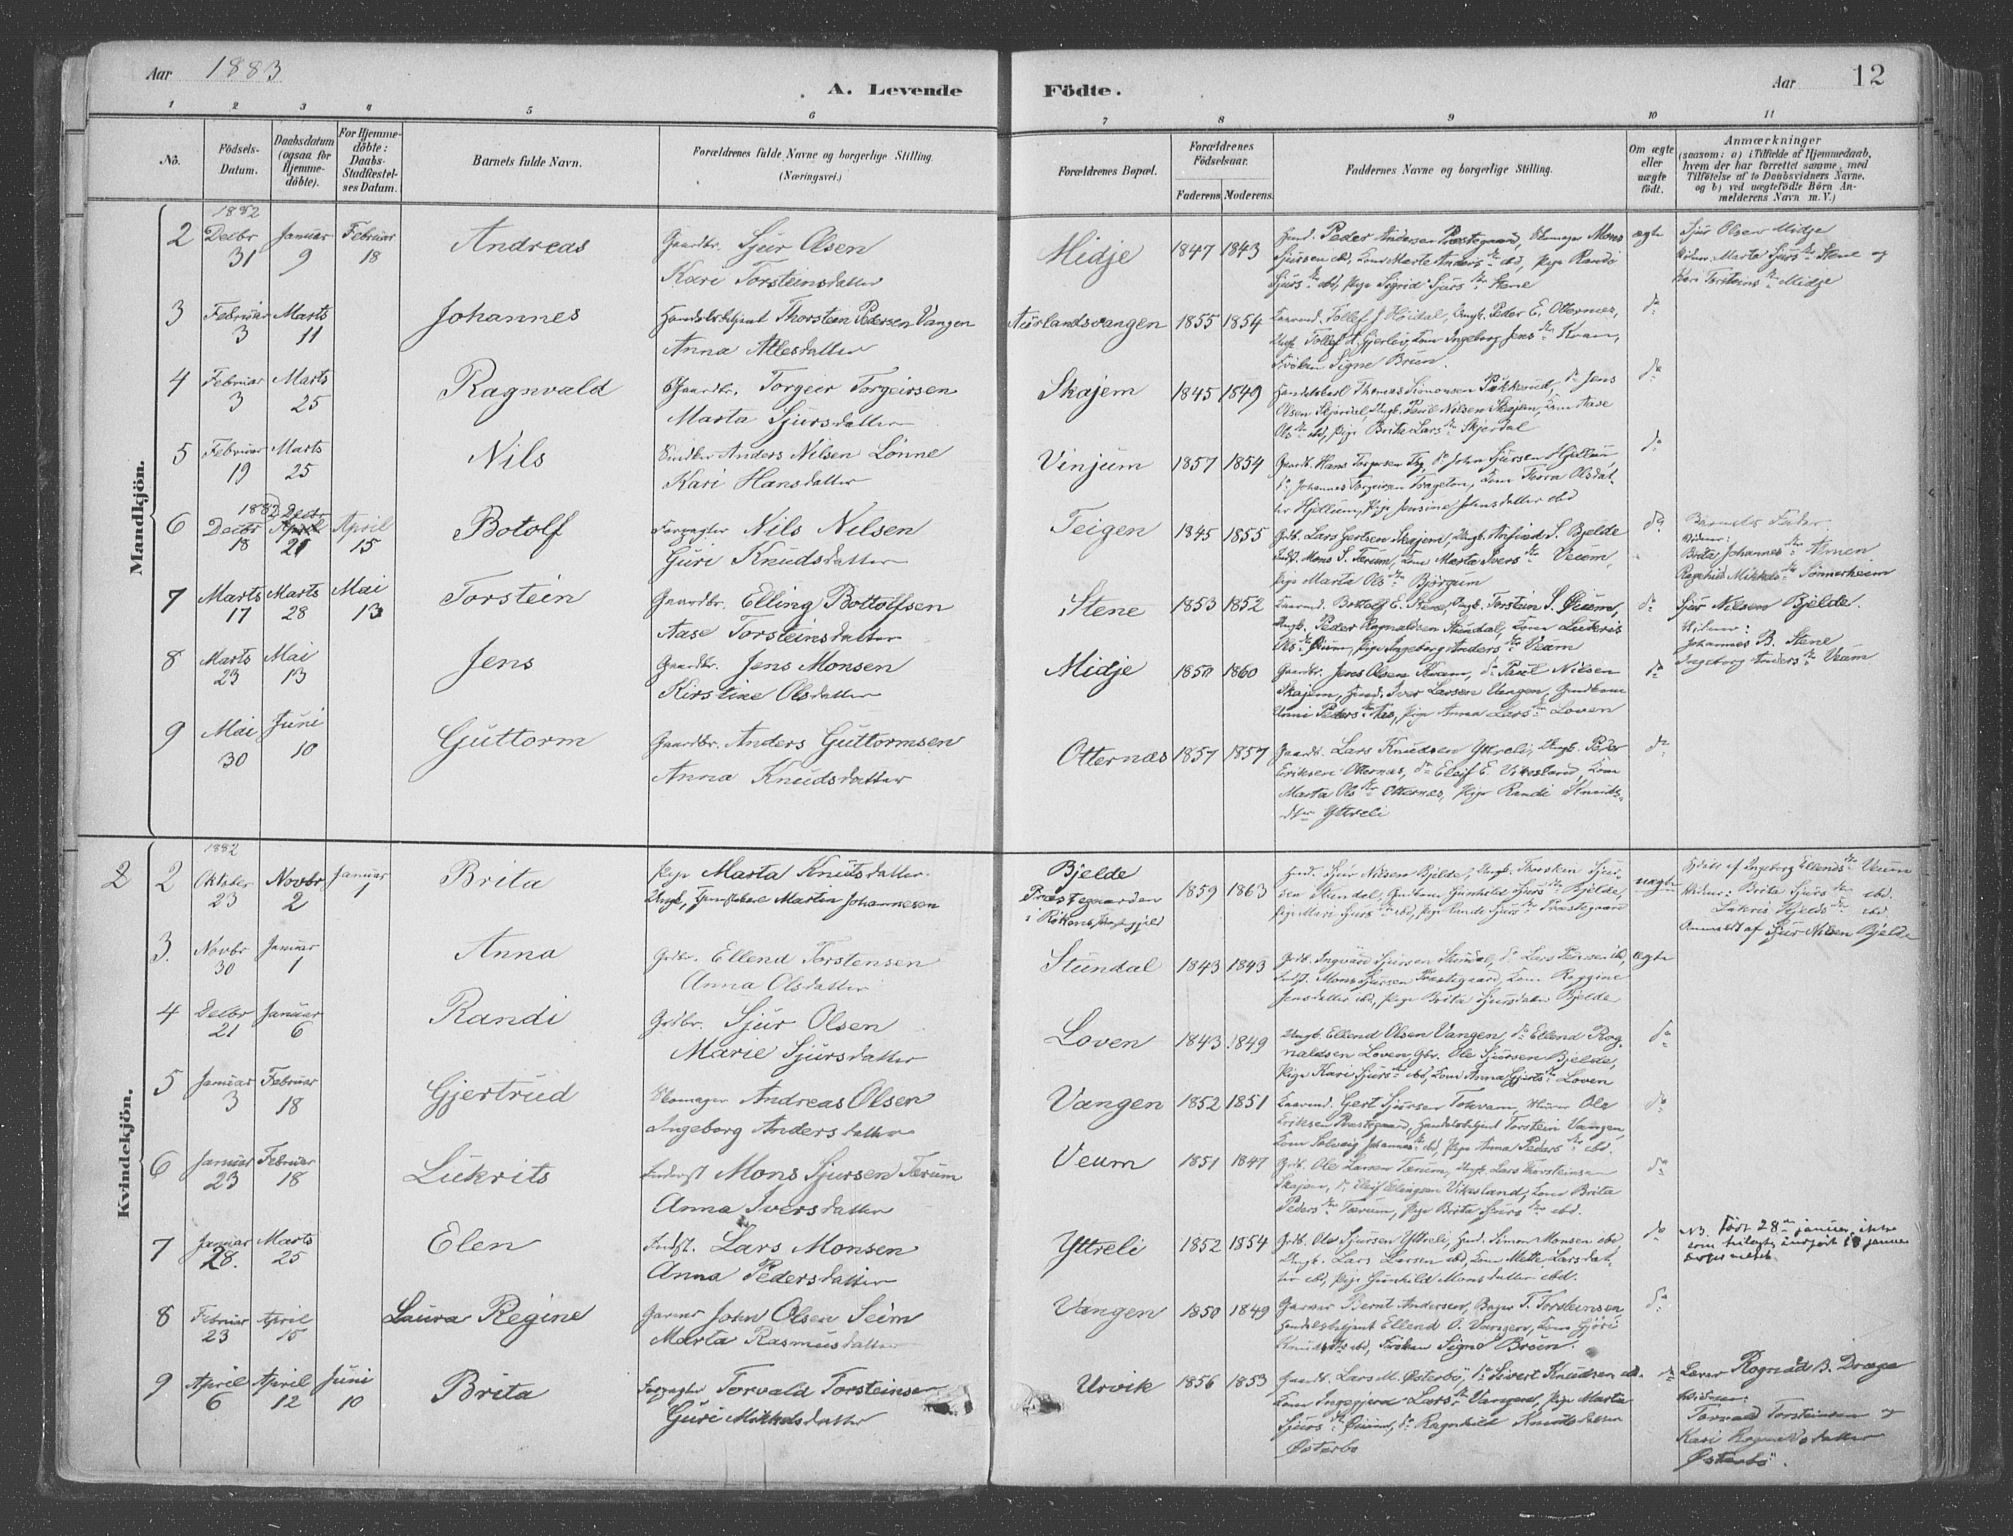 Aar 1883
A. Levende Födte.
Aar 12
1 2 3 4 5 6 7 8 9 10 11
No.
Födsels-Datum.
Daabsdatum (ogsaa for Hjemme-döbte).
For Hjemme-döbte: Daabs-Stadfæstel-ses Datum.
Barnets fulde Navn.
Forældrenes fulde Navne og borgerlige Stilling. (Næringsvei.)
Forældrenes Bopæl.
Forældrenes Födselsaar.
Faderens Moderens
Faddernes Navne og borgerlige Stilling.
Om ægte eller uægte födt.
Anmærkninger
(saasom: a) i Tilfælde af Hjemmedaab,
hvem der har forrettet samme, med
Tilföielse af to Daabsvidners Navne,
og b) ved uægtefödte Börn An-
melderens Navn m. V.)
Mandkjön.
2 1882 Decbr 31 Januar 9 Februar 18 Andreas Gaardbr. Sjur Olsen
Kari Torsteinsdatter
Midje 1847 1843 Peder Andersen Præstegaard, Skomager Mons
Sjursen ibd, Kone Marte Anders dtr ibd, Pige Randi
Sjurs dtr ibd, Pige Sigrid Sjurs dtr Stene
ægte
Sjur Olsen Midje
Marta Sjurs dtr Stene og
Kari Torsteins dtr Midje
3 Februar 3 Marts 11 Johannes Handelsbetjent Thorstein Pedersen Vangen
Anna Atlesdatter
Aurlandsvangen 1855 1854 Tollef J. Höidal, Ungk. Peder E. Otternes,
Ingeborg Jens dtr Kvam,
Fröken Signe Brun.
do
4 Februar 3 Marts 25 Ragnvald Gaardbr. Torgeir Torgeirssen
Marta Sjursdatter
Skajem 1845 1849 Thomas Simonsen do Jens
Olsen Skjerdal, Ungk. Paul Nilsen Skajem, Kone Aase
Ols dtr ibd, Pige Brita Lars dtr Skjerdal
do
5 Februar 19 Marts 25 Nils Anders Nilsen Lönne
Kari Hansdatter
Vinjum 1857 1854 Gaardb. Hans Torgersen do John Sjursen Hjellum,
do Johannes Torgeirsen Kone Torra Olsdat-
ter Hjellum, Pige Jensine Johnsdatter ibd
do
6 1882 Decbr 18 Decbr 21 April 15 Botolf Forpagter Nils Nilsen
Guri Knudsdatter
Teigen 1845 1855 Gdb. Lars Gertsen Skajem, Ungk. Arfind S. Bjelde
Indst. Mons S. Terum, Kone Marta Ivers dtr Veum,
Pige Marta Ols dtr Bjørgum
do
Barnets Fader.
Vidner:
Brita Johannes dtr Almen
Ragnhild Mikkels dtr Sönnerheim
7 Marts 17 Marts 28 Mai 13 Torstein Gaardbr. Elling Bottolfsen
Aase Torsteinsdatter
Stene 1853 1852 Kaarmd. Bottolf E. Stene, Ungk. Torstein S. Øium,
Ungk. Peder Ragnaldsen Stundal, Kone Lukris
Ols dtr Øium, Pige Ingeborg Anders dtr Veum
do
Sjur Nilsen Bjelde.
Vidner:
Johannes B. Stene
Ingeborg Anders dtr Veum
8 Marts 23 Mai 13 Jens Gaardbr. Jens Monsen
Kirstine Olsdatter
Midje 1850 1860 Gaardbr. Jens Olsen Kvam, do Paul Nilsen
Skajem, Iver Larsen Vangen, Gaardkone
Unni Peders dtr Aas, Pige Anna Lars dtr Loven
do
9 Mai 30 Juni 10 Guttorm Gaardbr. Anders Guttormsen
Anna Knudsdatter
Otternæs 1857 1857 Gaardb. Lars Knudsen Yttreli, Ungk. Peder
Eriksen Otternæs, do Eleif E. Vikesland, Kone
Marta Ols dtr Otternæs, Pige Randi Knuds-
dtr Yttreli
do
Kvindekjön.
2 2 1882 Oktober 23 Novbr 2 Januar 1 Brita Pige Marta Knutsdatter
Ungk. Martin Johannesen
Bjelde
Præstegaarden
1859 1863 Sjur Nilsen Bjelde, Ungk. Thorsten Sjur-
sen Stundal, Gunhild Sjurs dtr Bjelde,
Pige Mari Sjurs dtr ibd, Pige Randi Sjurs dtr Præstegaard
uægte
Ingeborg Ellends dtr Veum
Vidner: Brita Sjurs dtr ibd.
Lukris dtr ibd.
Anmeldt af Sjur Nilsen Bjelde
3. Novbr 30 Januar 1 Anna Grdbr. Ellend Torstensen
Anna Olsdatter
Stundal 1843 1843 Grdb. Ingvald Sjursen Stundal, do Lars Pedersen ibd,
Indst. Mons Sjursen Præstegaard, Kone Roggine
Jensdatter ibd, Pige Brita Sjursdatter Bjelde
ægte
4 Decbr 21 Januar 6 Randi Grdbr. Sjur Olsen
Marie Sjursdatter
Loven 1843 1849 Ungk. Ellend Olsen Vangen, do Ellend Rog-
naldsen Loven, Gbr. Ole Sjursen Bjelde,
Pige Kari Sjurs dtr ibd, Kone Anna Gjerts dtr Loven
do
5 Januar 3 Februar 18 Gjertrud Skomager Andreas Olsen
Ingeborg Andersdatter
Vangen 1852 1851 Kaarmd. Gert Sjursen Tokvam, Ole
Eriksen Præstegaard, Handelsbetjent Torstein Vangen,
Kone Solveig Johannes dtr ibd, Pige Anna Peders dtr ibd.
do
6 Januar 23 Februar 18 Lukrits Inderst Mons Sjursen Terum
Anna Iversdatter
Veum 1851 1847 Grdb. Ole Larsen Terum, Ungk. Lars Thorsteinsen
Skajem, do Eleif Ellingsen Vikesland, Kone Brita
Peders dtr Tærum, Pige Brita Sjurs dtr ibd.
do
7 Januar 28. Marts 25 Elen Indst. Lars Monsen
Anna Pedersdatter
Yttreli 1852 1854 Grdb. Ole Sjursen Yttreli, Simon Monsen ibd
Ungk. Lars Larsen ibd, Kone Mette Larsdat-
ter ibd, Pige Gunhild Monsdatter ibd.
do
NB. Födt 28de januar, ikke
som indført 18 januar
8 Februar 23 April 15 Laura Regine Garver John Olsen Seim
Marta Rasmusdatter
Vangen 1850 1849 Garver Bernt Andersen, Bager T. Torsteinsen,
Handelsbetjent Ellend O. Vangen, Kone Gjöri
Knuds dtr ibd, Fröken Signe Brun.
do
9 April 6 April 12 Juni 10 Brita Forpagter Torvald Torsteinsen
Guri Mikkelsdatter
Urvik 1856 1853 Gaardb. Lars M. Østerbö, do Sivert Knudsen ibd.
Kone Ingeggjerd Lars dtr Vangen, Pige Marta
Sjurs dtr Øium, do Ragnhild Knutsdatter
Østerbö
do
Lærer Rognald B. Dræge
Vidner:
Torvald Torsteinsen og
Kari Rognaldsdatter
Østerbö.